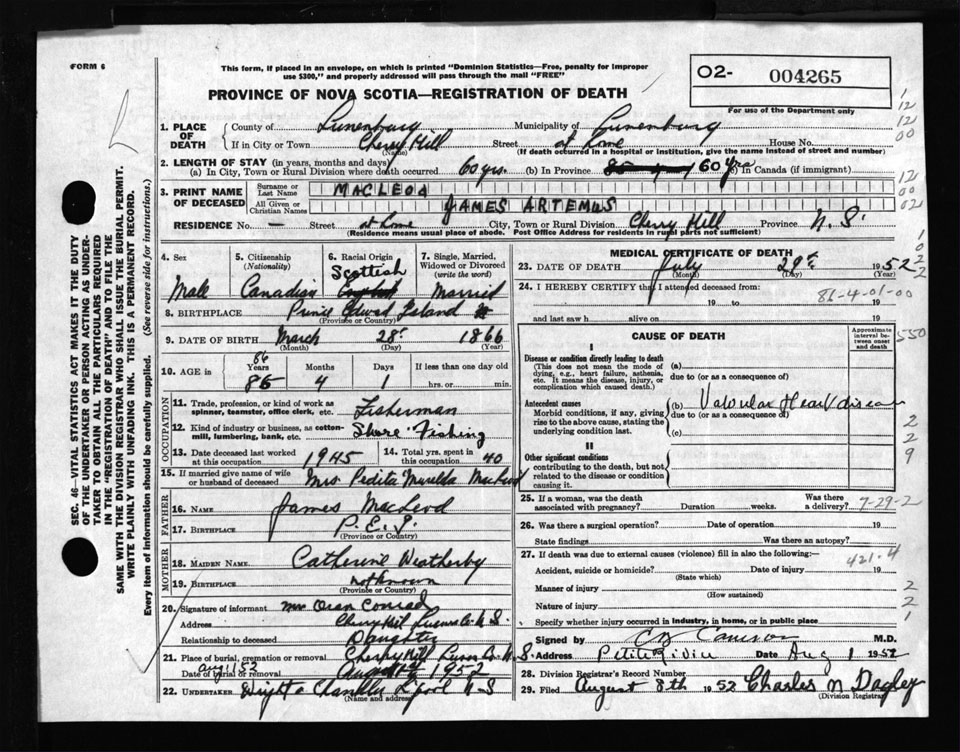 FORM 6
This form, if placed in an envelope, on which is printed "Dominion Statistics—Free, penalty for improper
use $300," and properly addressed will pass through the mail "FREE"
02- 004265
For use of the Department only
PROVINCE OF NOVA SCOTIA—REGISTRATION OF DEATH
1. PLACE OF DEATH { County of Lunenburg Municipality of Lunenburg
If in City or Town Cherry Hill (Name) Street at home House No.
(If death occurred in a hospital or institution, give the name instead of street and number)
2. LENGTH OF STAY (in years, months and days)
(a) In City, Town or Rural Division where death occurred 60 yrs. (b) In Province 60 yrs (c) In Canada (if immigrant)
3. PRINT NAME OF DECEASED { Surname or Last Name MACLEOD
All Given or Christian Names JAMES ARTEMUS
RESIDENCE No. — Street at home City, Town or Rural Division Cherry Hill Province N.S.
(Residence means usual place of abode. Post Office Address for residents in rural parts not sufficient)
4. Sex Male
5. Citizenship (Nationality) Canadian
6. Racial Origin Scottish
7. Single, Married, Widowed or Divorced (write the word) Married
8. BIRTHPLACE Prince Edward Island
(Province or Country)
9. DATE OF BIRTH March 28 1866
(Month) (Day) (Year)
10. AGE in Years 86 Months 4 Days 1 If less than one day old hrs. or min.
OCCUPATION
11. Trade, profession, or kind of work as spinner, teamster, office clerk, etc. Fisherman
12. Kind of industry or business, as cotton-mill, lumbering, bank, etc. Shore Fishing
13. Date deceased last worked at this occupation 1945
14. Total yrs. spent in this occupation 40
15. If married give name of wife or husband of deceased Mrs MacLeod
FATHER
16. NAME James MacLeod
17. BIRTHPLACE P.E.I.
(Province or Country)
MOTHER
18. MAIDEN NAME Catherine Weatherby
19. BIRTHPLACE not known
(Province or Country)
20. Signature of informant Mrs Oran Conrad
Address Cherry Hill Lunen Co. N.S.
Relationship to deceased Daughter
21. Place of burial, cremation or removal Cherry Hill Lun Co. N.S.
Date of burial or removal Aug 1 52 1952
22. UNDERTAKER Wright & Chandler L'pool N-S
(Name and address)
MEDICAL CERTIFICATE OF DEATH
23. DATE OF DEATH July 29th 1952
(Month) (Day)
24. I HEREBY CERTIFY that I attended deceased from: 86-4-01-00
19 to 19
and last saw h alive on 19
CAUSE OF DEATH
Approximate interval between onset and death
I
Disease or condition directly leading to death (a)
(This does not mean the mode of dying, e.g., heart failure, asthenia, etc. It means the disease, injury, or complication which caused death.)
due to (or as a consequence of)
Antecedent causes (b) Valvular Heart disease
Morbid conditions, if any, giving rise to the above cause, stating the underlying condition last.
due to (or as a consequence of)
(c)
II
Other significant conditions
contributing to the death, but not related to the disease or condition causing it.
25. If a woman, was the death associated with pregnancy? Duration weeks. Was there a delivery? 7-29-2
26. Was there a surgical operation? Date of operation 19
State findings Was there an autopsy?
27. If death was due to external causes (violence) fill in also the following: 421.4
Accident, suicide or homicide? Date of injury 19
(State which)
Manner of injury
(How sustained)
Nature of injury
Specify whether injury occurred in industry, in home, or in public place
Signed by Cameron M.D.
Address Petite Riviere Date Aug 1 1952
28. Division Registrar's Record Number
29. Filed August 8th 1952 Charles N Dagley
(Division Registrar)
SEC. 46—VITAL STATISTICS ACT MAKES IT THE DUTY
OF THE UNDERTAKER OR PERSON ACTING AS UNDER-
TAKER TO OBTAIN ALL THE PARTICULARS REQUIRED
IN THE "REGISTRATION OF DEATH" AND TO FILE THE
SAME WITH THE DIVISION REGISTRAR WHO SHALL ISSUE THE BURIAL PERMIT.
WRITE PLAINLY WITH UNFADING INK. THIS IS A PERMANENT RECORD.
Every item of information should be carefully supplied. (See reverse side for instructions.)